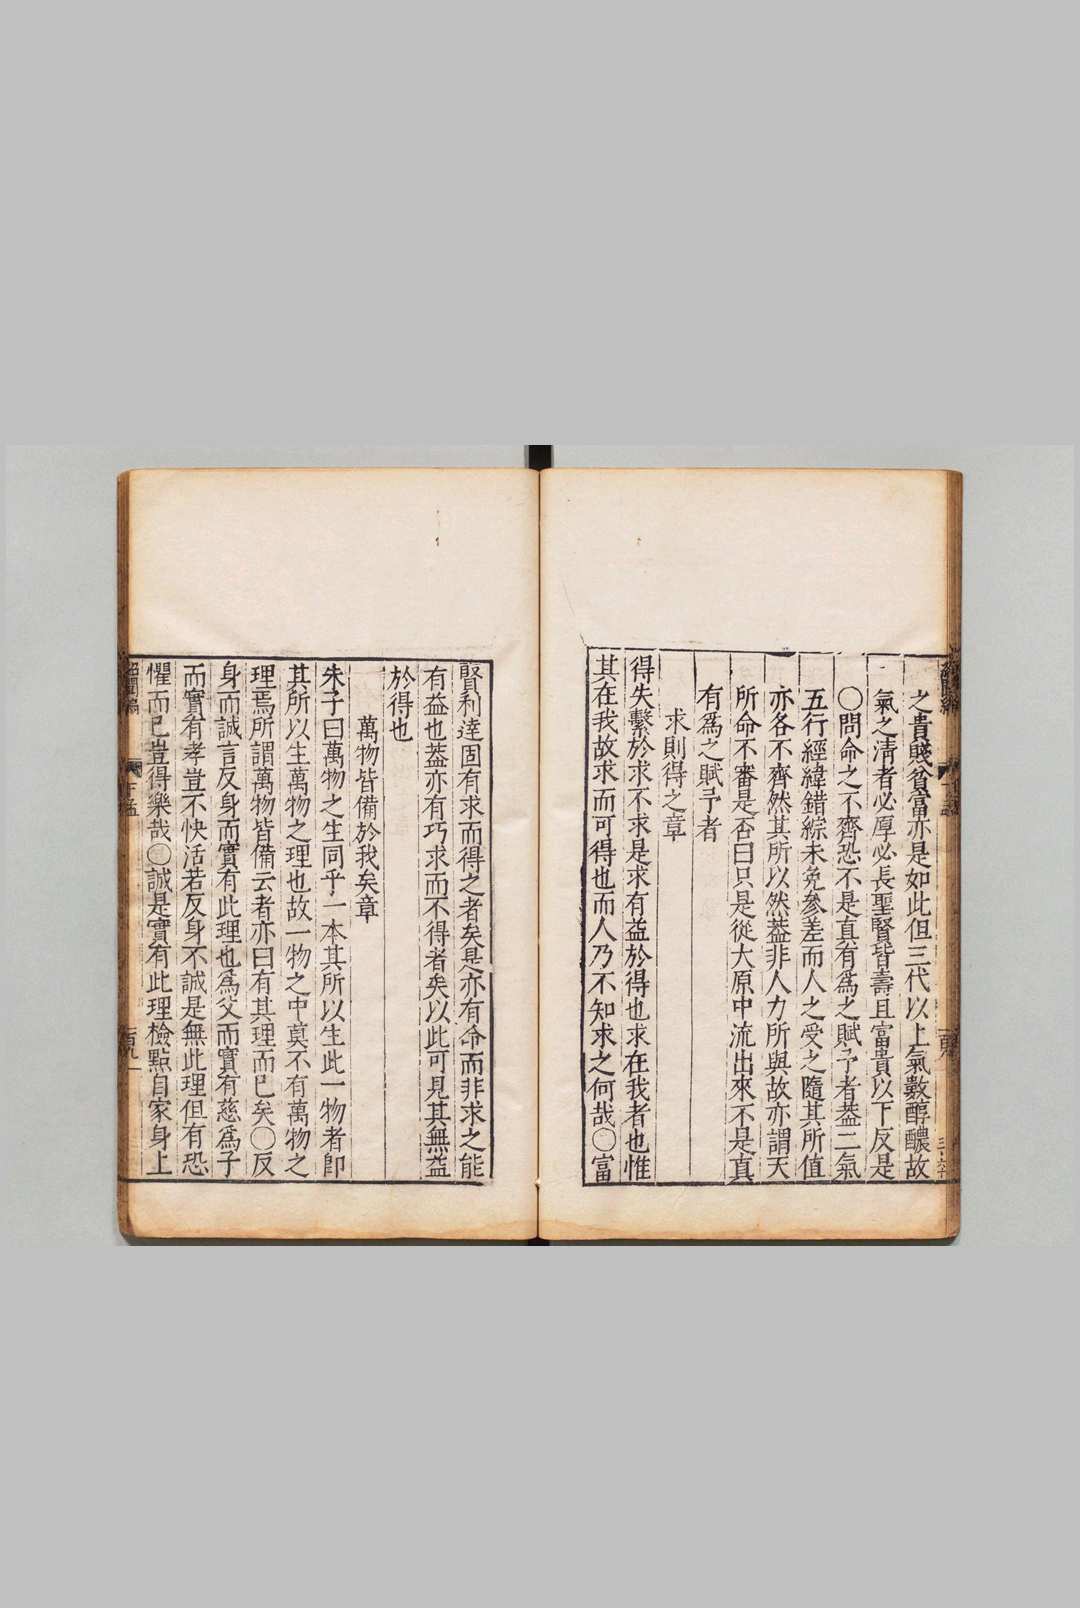 之貴賤貧富亦是如此但三代以上氣數醇醲故
氣之清者必厚必長聖賢皆壽且富貴以下反是
〇問命之不齊恐不是真有為之賦予者葢二氣
五行經緯錯綜未免參差而人之受之隨其所值
亦各不齊然其所以然葢非人力所與故亦謂天
所命不審是否曰只是從大原中流出來不是真
有為之賦予者
求則得之章
得失繫於求不求是求有益於得也求在我者也惟
其在我故求而可得也而人乃不知求之何哉〇富
賢利達固有求而得之者矣是亦有命而非求之能
有益也葢亦有巧求而不得者矣以此可見其無益
於得也
萬物皆備於我矣章
朱子曰萬物之生同乎一本其所以生此一物者卽
其所以生萬物之理也故一物之中莫不有萬物之
理焉所謂萬物皆備云者亦曰有其理而已矣〇反
身而誠言反身而實有此理也為父而實有慈為子
而實有孝豈不快活若反身不誠是無此理但有恐
懼而已豈得樂哉〇誠是實有此理檢點自家身上